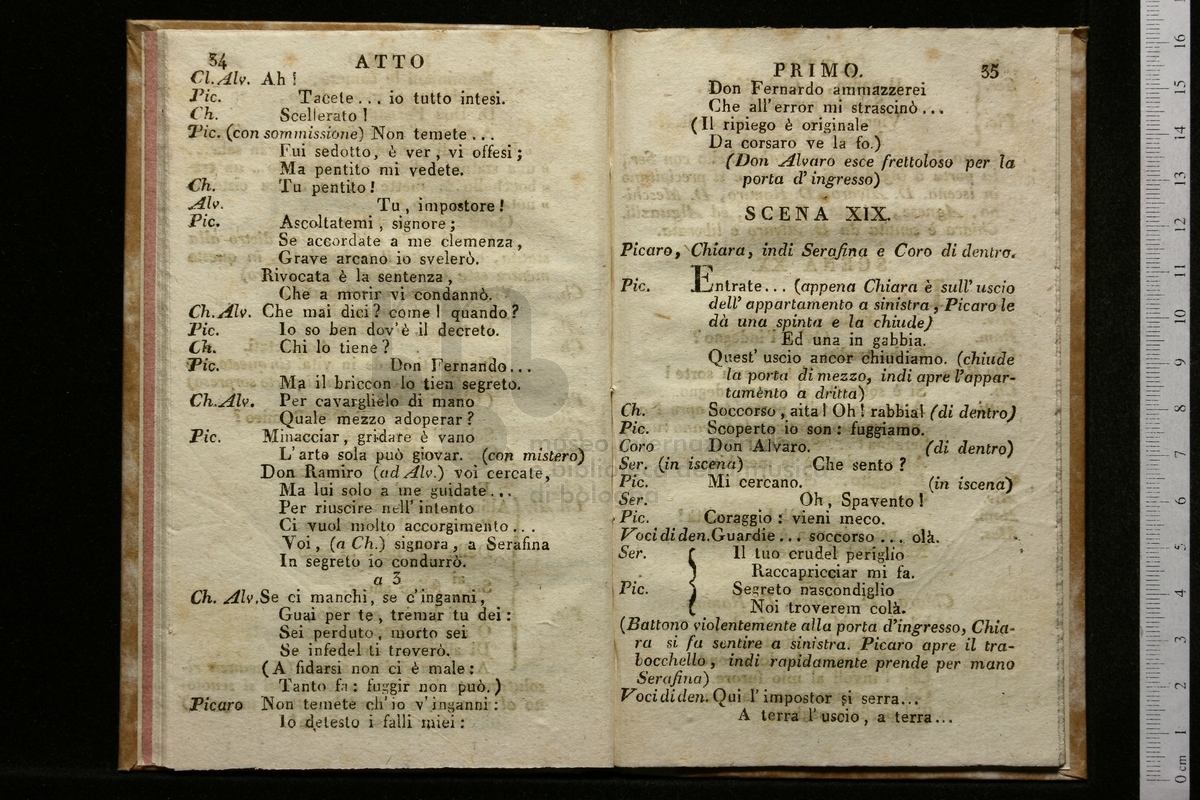 34 ATTO
Cl. Alv. Ah!
Pic. Tacete... io tutto intesi.
Ch. Scellerato!
Pic. (con sommissione) Non temete...
Fui sedotto, è ver, vi offesi;
Ma pentito mi vedete.
Ch. Tu pentito!
Alv. Tu, impostore!
Pic. Ascoltatemi, signore;
Se accordate a me clemenza,
Grave arcano io svelerò.
Rivocata è la sentenza,
Che a morir vi condannò.
Ch. Alv. Che mai dici? come! quando?
Pic. Io so ben dov'è il decreto.
Ch. Chi lo tiene?
Pic. Don Fernando...
Ma il briccon lo tien segreto.
Ch. Alv. Per cavarglielo di mano
Quale mezzo adoperar?
Pic. Minacciar, gridare è vano
L'arte sola può giovar. (con mistero)
Don Ramiro (ad Alv.) voi cercate,
Ma lui solo a me guidate...
Per riuscire nell'intento
Ci vuol molto accorgimento...
Voi, (a Ch.) signora, a Serafina
In segreto io condurrò.
a 3
Ch. Alv. Se ci manchi, se c'inganni,
Guai per te, tremar tu dei:
Sei perduto, morto sei
Se infedel ti troverò.
(A fidarsi non ci è male:
Tanto fa: fuggir non può.)
Picaro Non temete ch'io v'inganni:
Io detesto i falli miei:
PRIMO. 35
Don Fernardo ammazzerei
Che all'error mi strascinò...
(Il ripiego è originale
Da corsaro ve la fo.)
(Don Alvaro esce frettoloso per la
porta d'ingresso)
SCENA XIX.
Picaro, Chiara, indi Serafina e Coro di dentro.
Pic. Entrate... (appena Chiara è sull'uscio
dell'appartamento a sinistra, Picaro le
dà una spinta e la chiude)
Ed una in gabbia.
Quest'uscio ancor chiudiamo. (chiude
la porta di mezzo, indi apre l'appar-
tamènto a dritta)
Ch. Soccorso, aita! Oh! rabbia! (di dentro)
Pic. Scoperto io son: fuggiamo.
Coro Don Alvaro. (di dentro)
Ser. (in iscena) Che sento?
Pic. Mi cercano. (in iscena)
Ser. Oh, Spavento!
Pic. Coraggio: vieni meco.
Voci di den. Guardie... soccorso... olà.
Ser. Il tuo crudel periglio
Raccapricciar mi fa.
Pic. Segreto nascondiglio
Noi troverem colà.
(Battono violentemente alla porta d'ingresso, Chia-
ra si fa sentire a sinistra. Picaro apre il tra-
bocchello, indi rapidamente prende per mano
Serafina)
Voci di den. Qui l'impostor si serra...
A terra l'uscio, a terra...
museo internazionale
biblioteca della musica
di bologna
0 cm 1 2 3 4 5 6 7 8 9 10 11 12 13 14 15 16